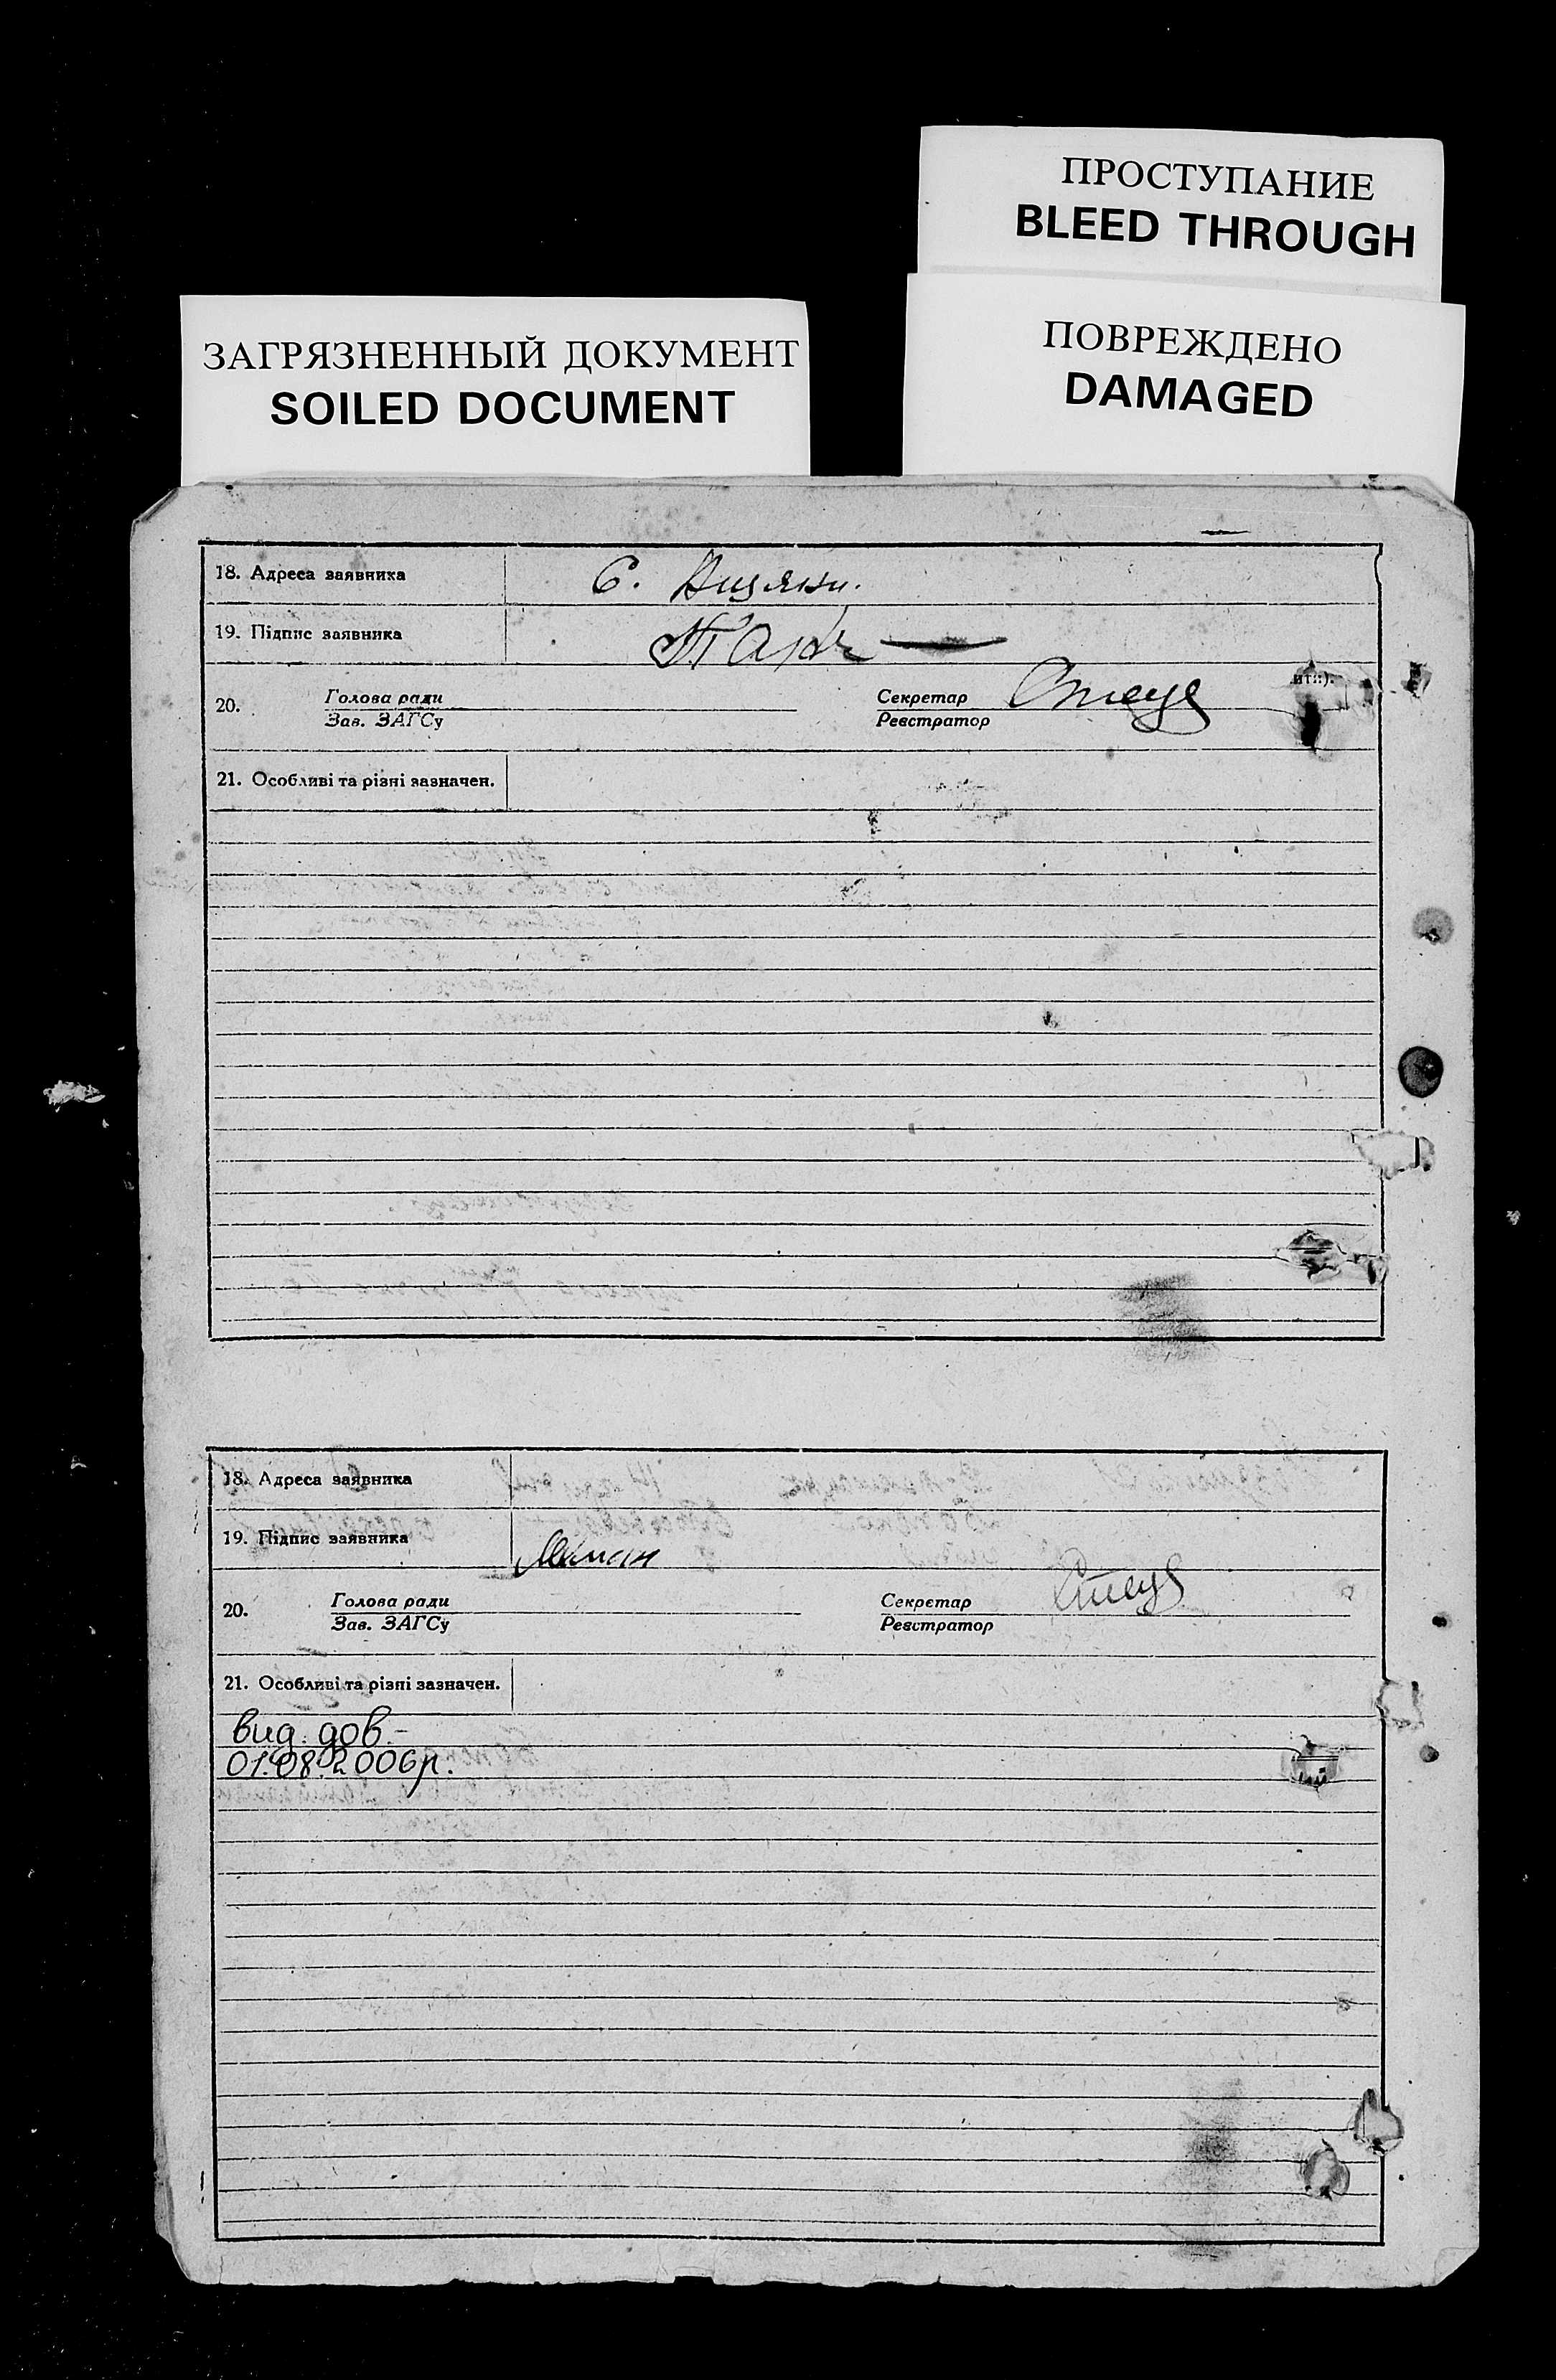 ПРОСТУПАНИЕ
BLEED THROUGH
ЗАГРЯЗНЕННЫЙ ДОКУМЕНТ
SOILED DOCUMENT
ПОВРЕЖДЕНО
DAMAGED
18. Адреса заявника С.
19. Підпис заявника
20. Голова ради Секретар
Зав. ЗАГСу Реєстратор
21. Особливі та різні зазначен.
18. Адреса заявника
19. Підпис заявника
20. Голова ради Секретар
Зав. ЗАГСу Реєстратор
21. Особливі та різні зазначен.
вид. дов.-
01.08.2006р.